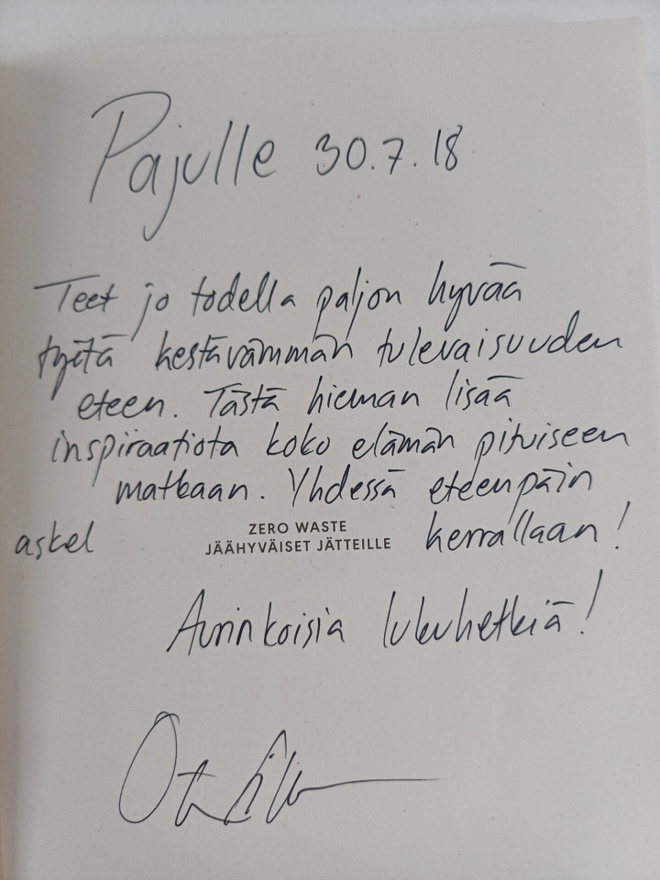 Pajulle 30.7.18
Teet jo todella paljon hyvää
työtä kestävämmän tulevaisuuden
eteen. Tästä hieman lisää
inspiraatiota koko elämän pituiseen
matkaan. Yhdessä eteenpäin
askel kerrallaan!
ZERO WASTE
JÄÄHYVÄISET JÄTTEILLE
Aurinkoisia lukuhetkiä!